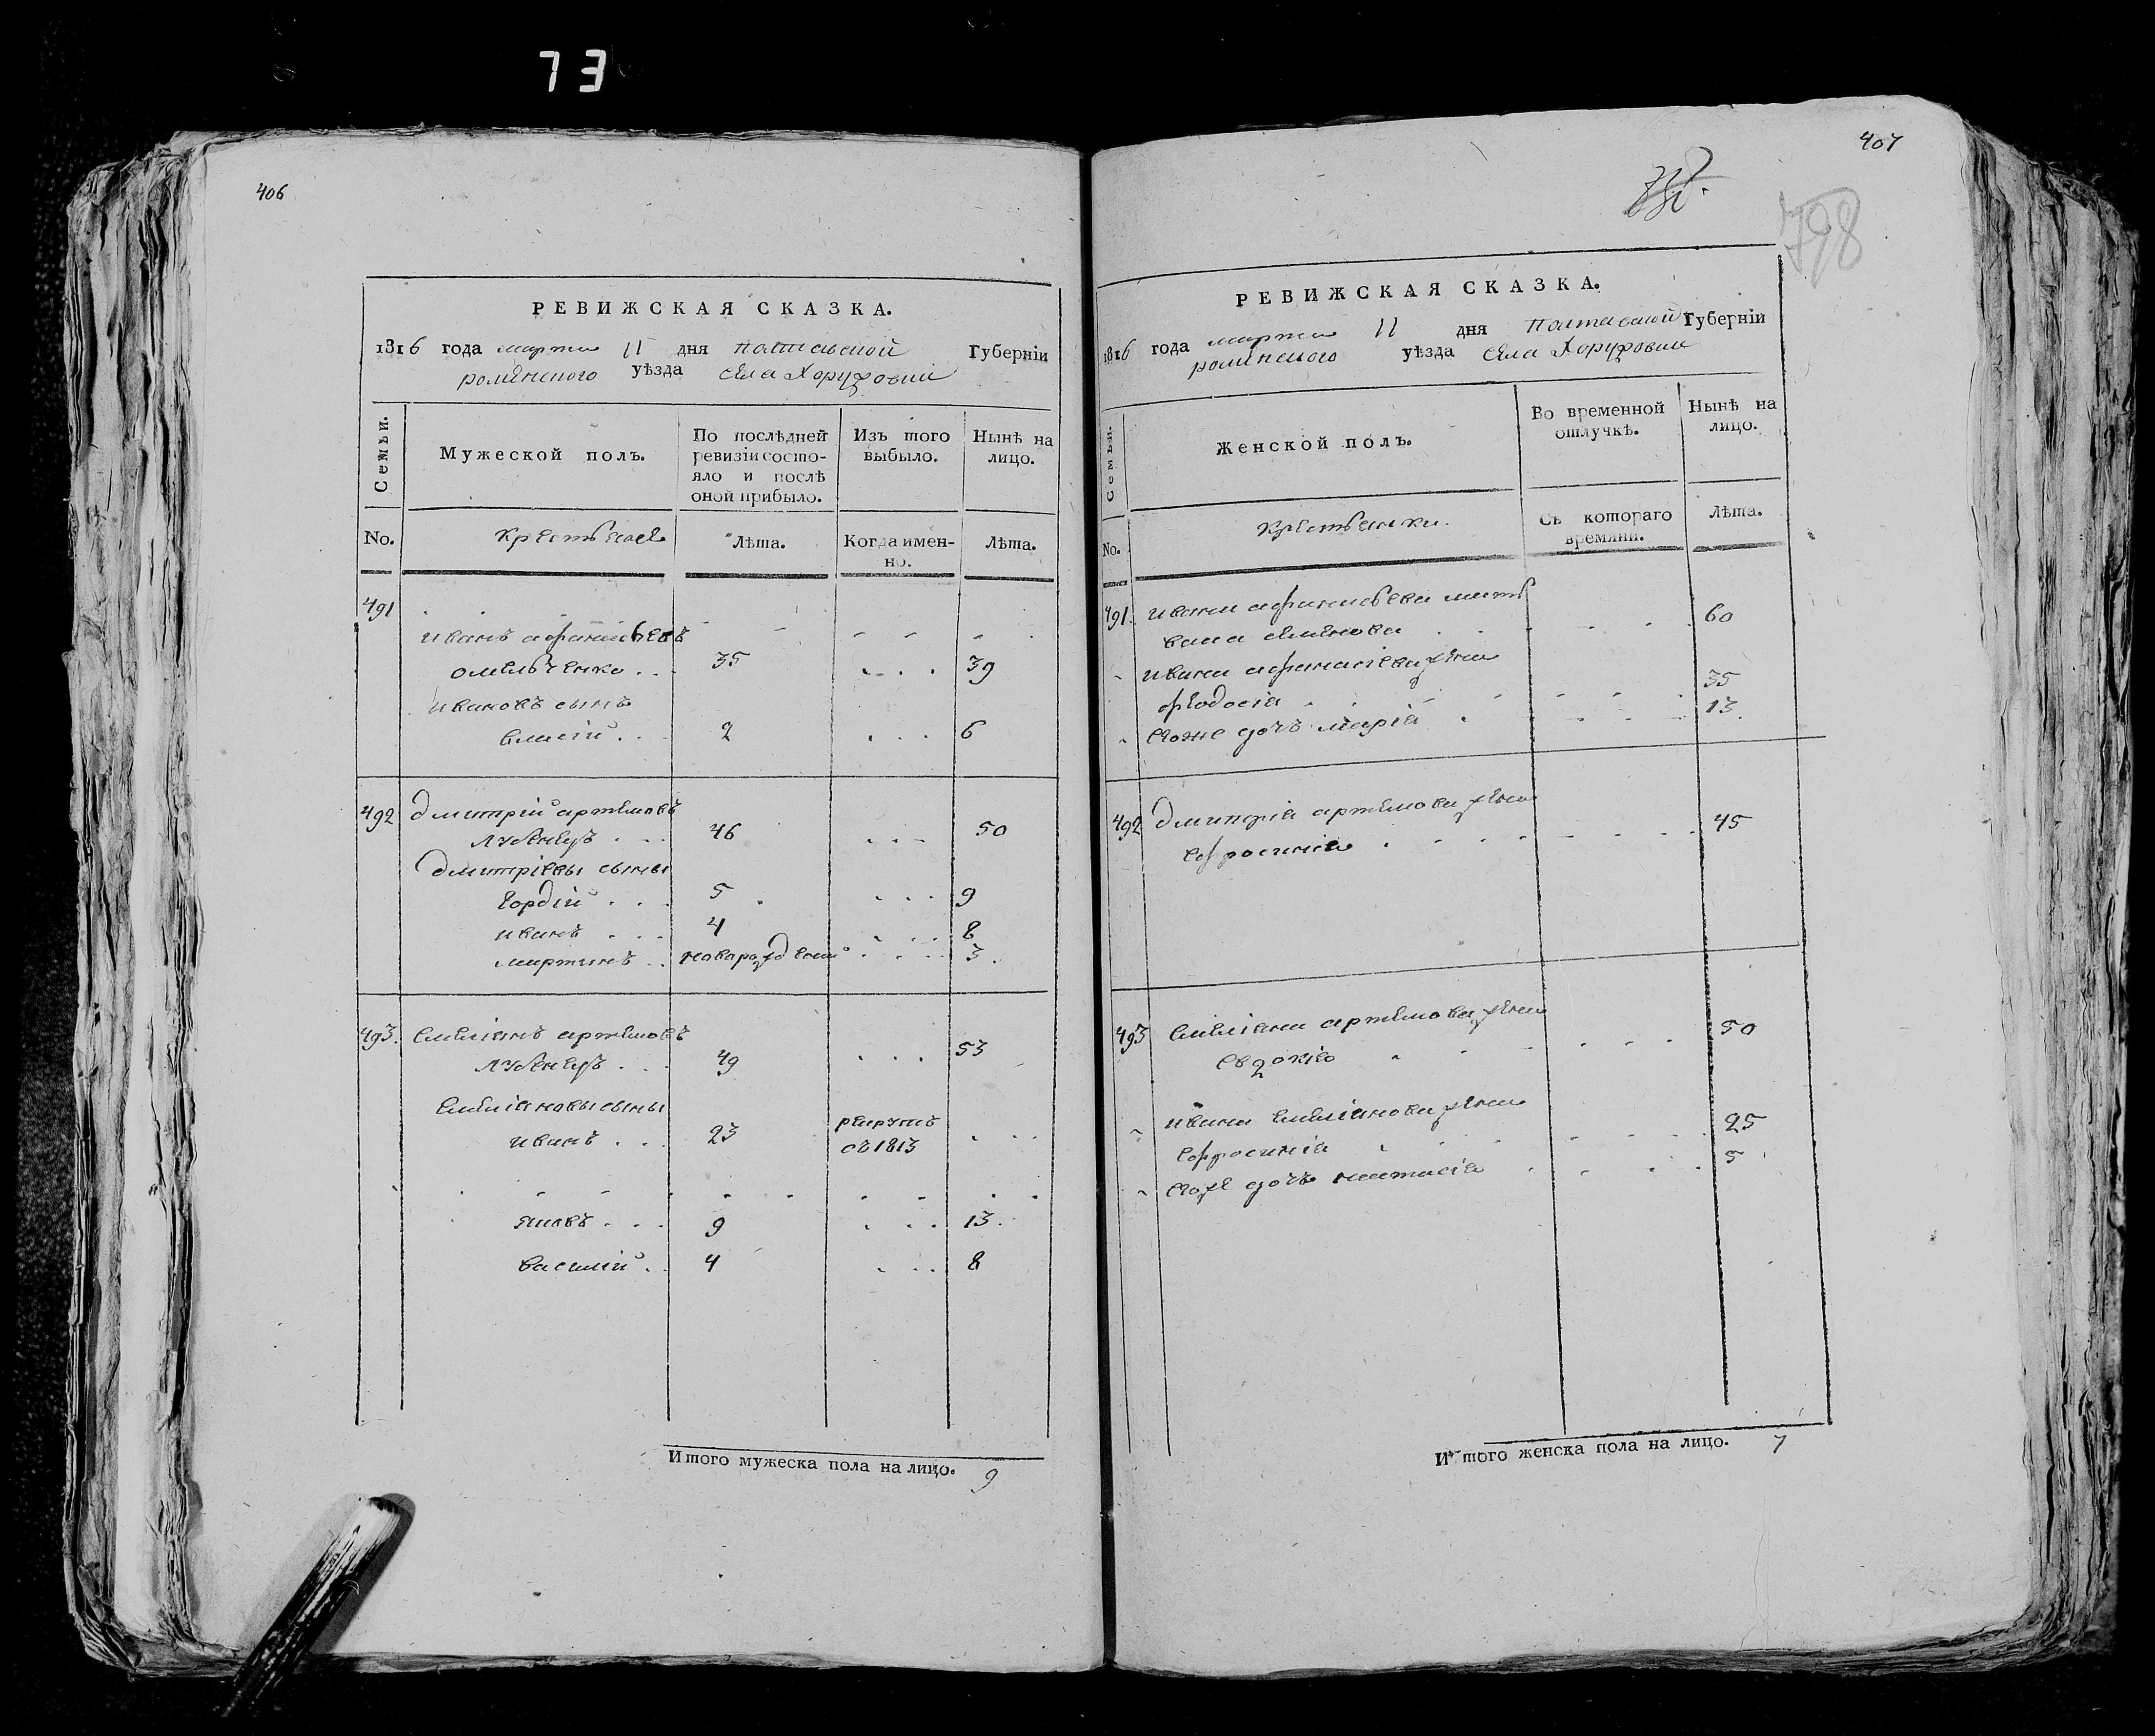 73
406
РЕВИЖСКАЯ СКАЗКА.
1816 года марта 11 дня полтавской Губерніи
роменского уѣзда села Хоружовки
Семьи.
Мужеской полъ.
По послѣдней ревизіи состояло и послѣ оной прибыло.
Изъ того выбыло.
Нынѣ на лицо.
No.
крестьяне
Лѣта.
Когда именно.
Лѣта.
491
иванъ афанасьевъ
омельченко . . 35 . . . 39
ивановъ сынъ
власій . . 2 . . . 6
492 дмитрій артемовъ
лубенецъ . . . 46 . . . 50
дмитріевы сыны
гордій . . . 5 . . . 9
иванъ . . . 4 . . . 8
мартинъ . . новорожденъ . . . 3.
493. емеліанъ артемовъ
лубенецъ . . . 49 . . . 53
емеліановы сыны
иванъ . . . 23 рекрутъ
съ 1813 . . .
яковъ . . . 9 . . . 13.
василій . . 4 . . . 8
Итого мужеска пола на лицо. 9
407
798
РЕВИЖСКАЯ СКАЗКА.
1816 года марта 11 дня Полтавской Губерніи
роменского уѣзда села Хоружовки
Семьи.
Женской полъ.
Во временной отлучкѣ.
Нынѣ на лицо.
No.
крестьянки.
Съ котораго времяни.
Лѣта.
491. ивана афанасьева мать
семенова . . . 60
ивана афанасіева жена
феодосія . . . 35
егоже дочь марія . . . 13.
492 дмитрія артемова жена
ефросинія . . . 45
493 емеліана артемова жена
евдокія . . . 50
ивана емеліанова жена
ефросинія . . . 25
егоже дочь настасія . . . 5
И того женска пола на лицо. 7